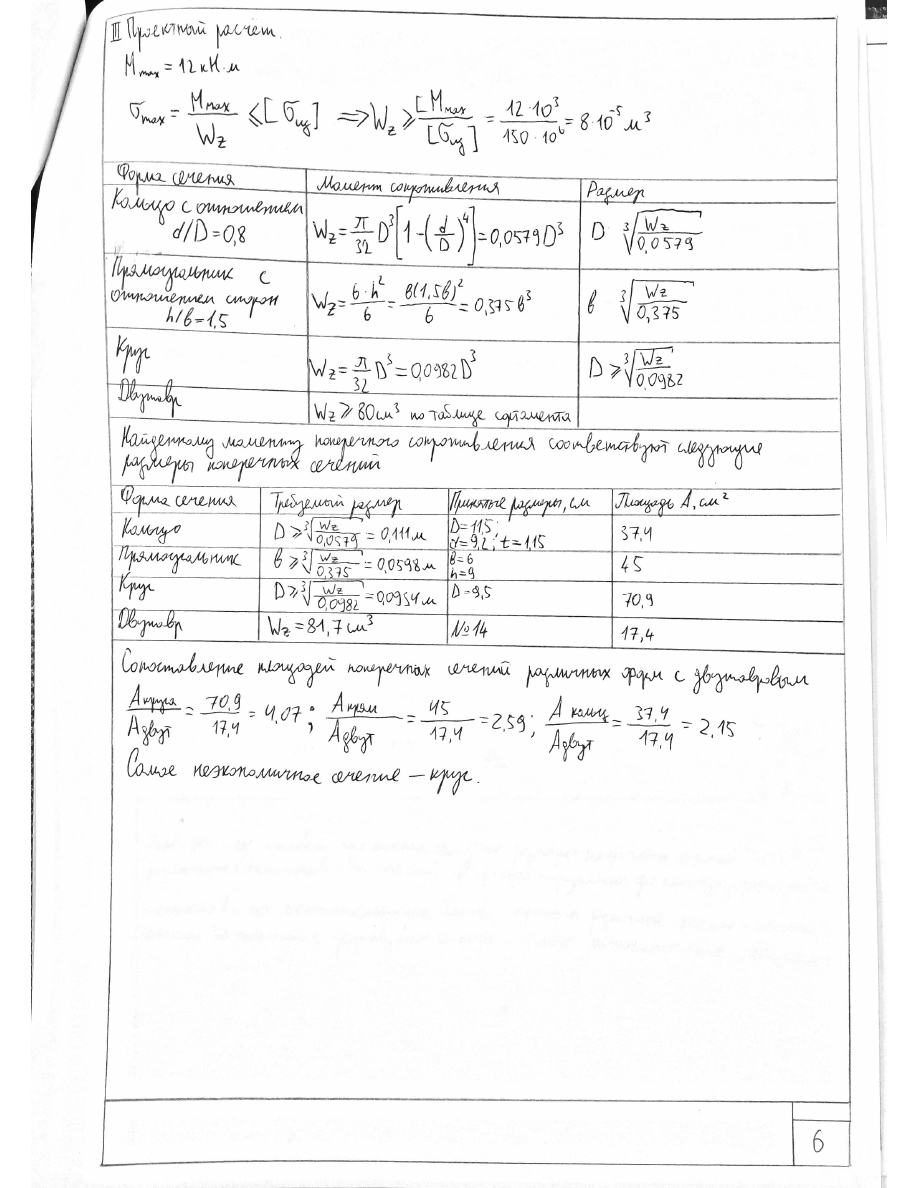 III Проектный расчет.
Mmax = 12 кН·м
σmax = Mmax/Wz ≤ [σиз] ⟹ Wz ≥ [Mmax/[σиз] = 12·10³/150·10⁶ = 8·10⁻⁵ м³
Форма сечения Момент сопротивления Размер
Кольцо с отношением d/D = 0,8 Wz = π/32 D³[1-(d/D)⁴] = 0,0579D³ D ∛(Wz/0,0579)
Прямоугольник с отношением сторон h/в = 1,5 Wz = в·h²/6 = в(1,5в)²/6 = 0,375в³ в ∛(Wz/0,375)
Круг Wz = π/32 D³ = 0,0982D³ D ≥ ∛(Wz/0,0982)
Двутавр Wz ≥ 80см³ по таблице сортамента
Найденному моменту поперечного сопротивления соответствуют следующие
размеры поперечных сечений
Форма сечения Требуемый размер Принятые размеры, см Площадь А, см²
Кольцо D ≥ ∛(Wz/0,0579) = 0,111м D = 11,5; d = 9,2; t = 1,15 37,4
Прямоугольник в ≥ ∛(Wz/0,375) = 0,0598м в = 6 h = 9 45
Круг D ≥ ∛(Wz/0,0982) = 0,0934м D = 9,5 70,9
Двутавр Wz = 81,7см³ №14 17,4
Сопоставление площадей поперечных сечений различных форм с двутавровым
Aкруга/Aдвут = 70,9/17,4 = 4,07; Aпрям/Aдвут = 45/17,4 = 2,59; A кольц/Aдвут = 37,4/17,4 = 2,15
Самое неэкономичное сечение – круг.
6